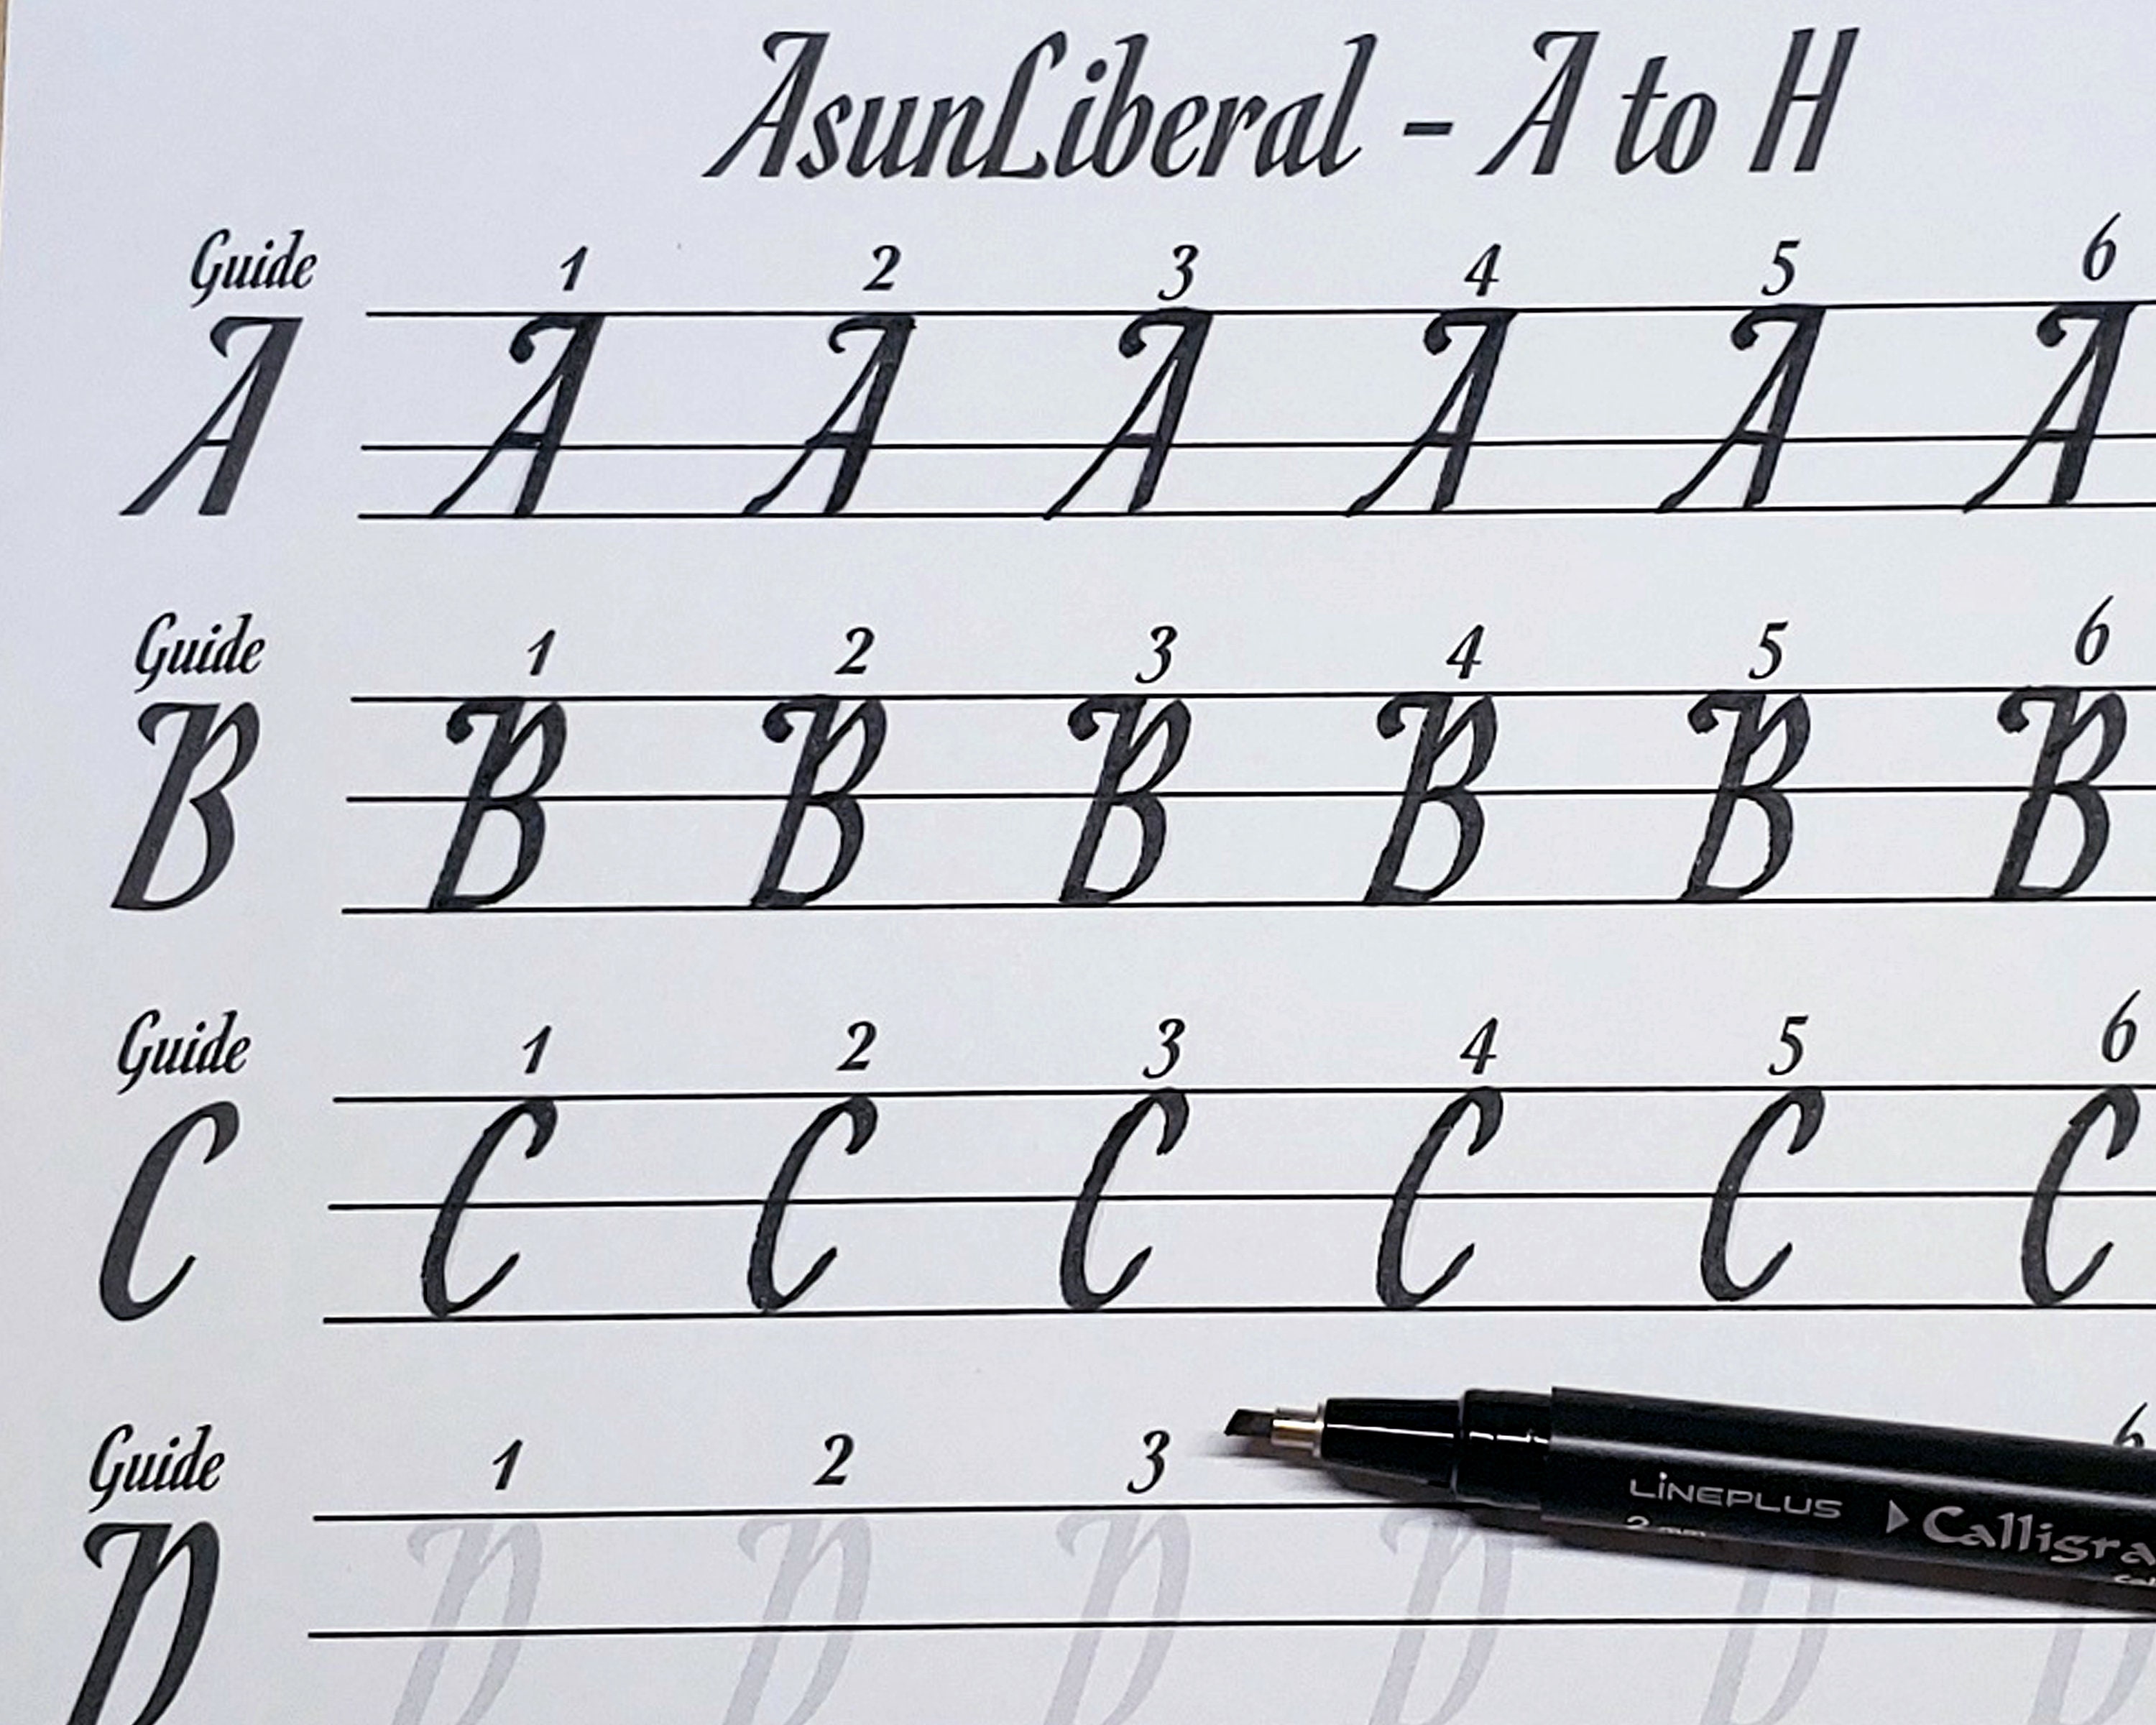 AsunLiberal - A to H
Guide 1 2 3 4 5 6
A A A A A A A
Guide 1 2 3 4 5 6
B B B B B B B
Guide 1 2 3 4 5 6
C C C C C C C
Guide 1 2 3 6
D D D D D D D
LiNEPLUS
2 mm